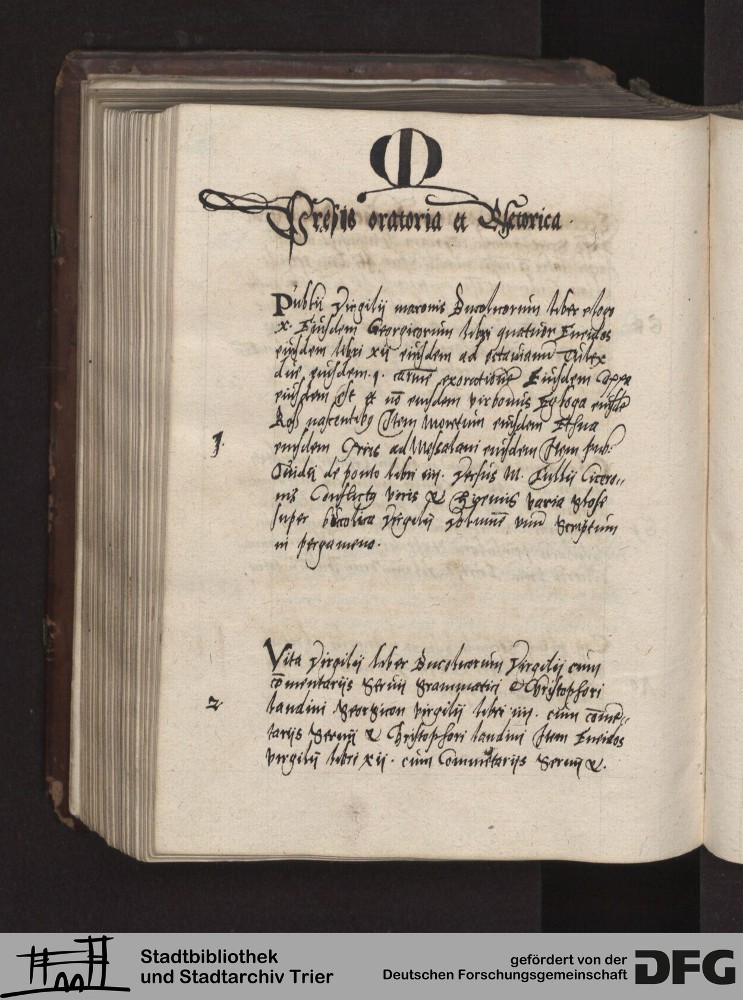 O
Presis oratoria et Rhetorica
Publii Virgilij maronis Bucolicorum liber eloga
x. Eiusdem Georgicorum libri quatuor Eneidos
eiusdem libri xij eiusdem ad octavianū Culex
eiusdem carmē exoratione Eiusdem Copa
eiusdem Est et nō eiusdem virbonus Egloga eiusdē
Ros nascentib9 Item Moretum eiusdem Ethna
1.
eiusdem Ciris ad Messalam eiusdem Item pub:
Ouidij de ponto libri iiij. versus M. Tullij Cicero-
nis Conflict9 veris & hyemis varia glose
super bucolica Virgilij volumē vnū Scriptum
in pergameno.
Vita Virgilij liber Bucolicorum Virgilij cum
cōmentarijs Seruij Grammatici & Christophori
2
landini Georgicon virgilij libri iiij. cum cōmē-
tarijs Seruij & Christophori landini Item Eneidos
virgilij libri xij. cum Commētarijs Seruij &.
Stadtbibliothek
und Stadtarchiv Trier
gefördert von der
Deutschen Forschungsgemeinschaft
DFG